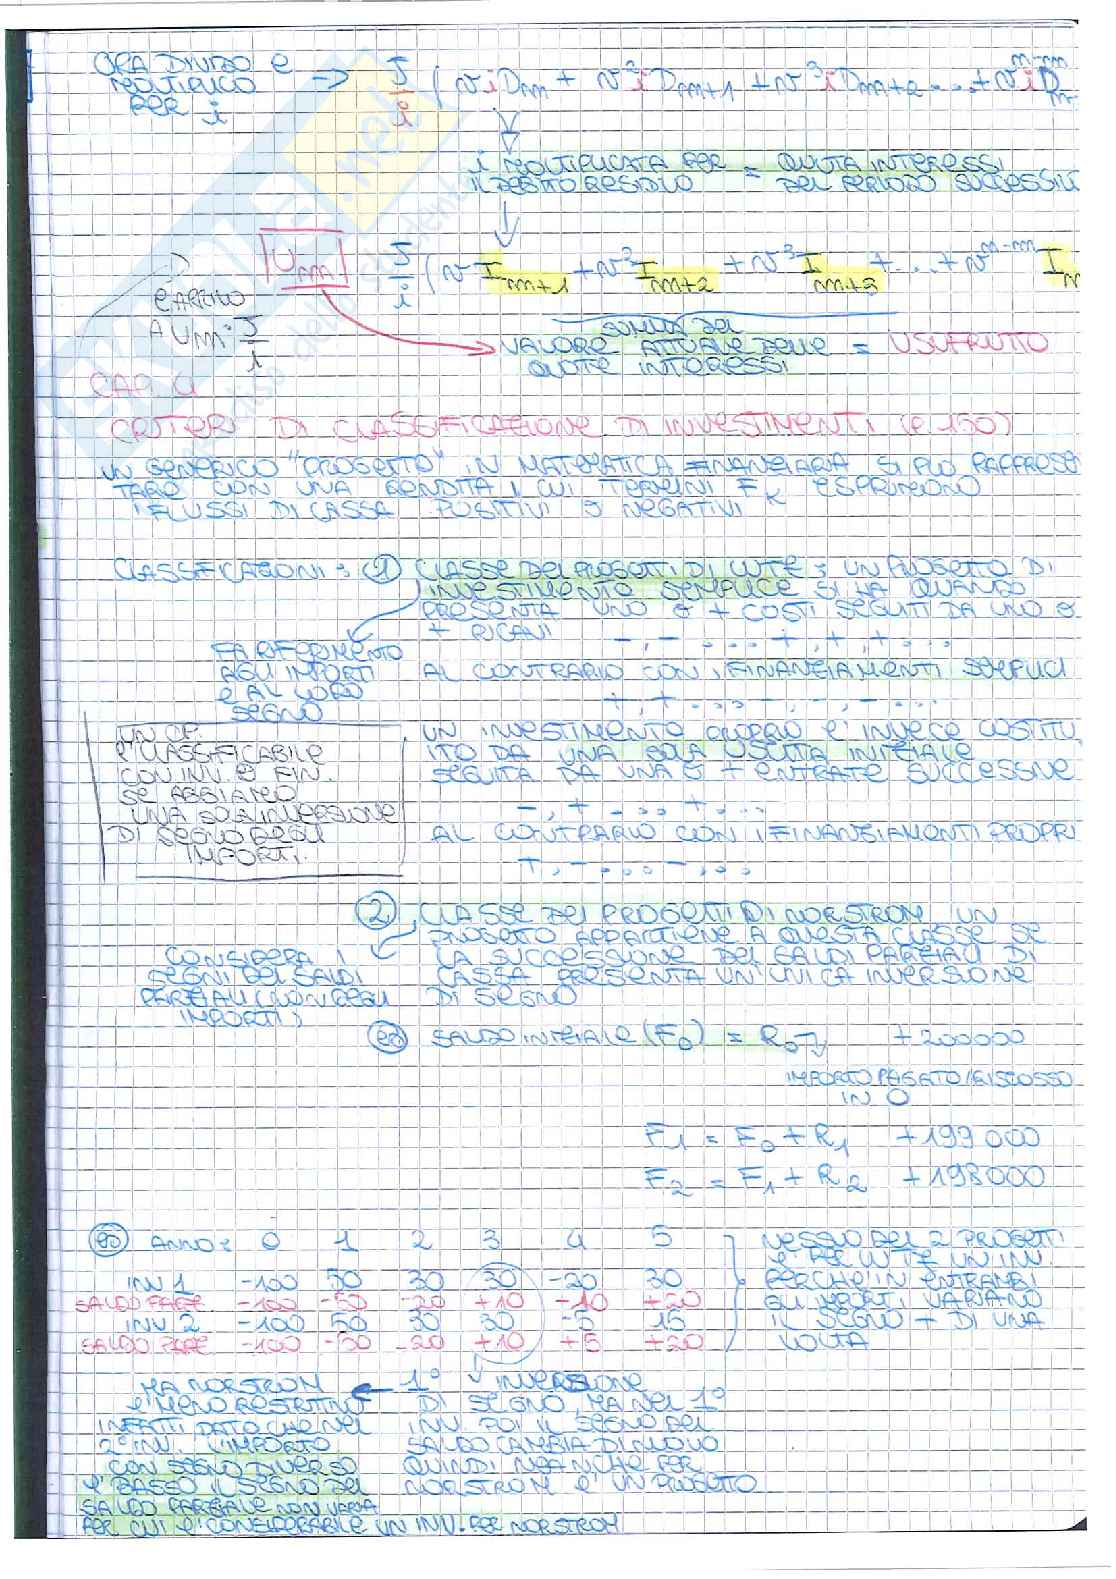 ORA DIVIDO E
MOLTIPLICO
PER i
→ J/i (v i D_m + v² i D_m+1 + v³ i D_m+2 ... + v^n-m i D_n
i MOLTIPLICATA PER = QUOTA INTERESSI
IL DEBITO RESIDUO DEL PERIODO SUCCESSIV
U_m J/i (v I_m+1 + v² I_m+2 + v³ I_m+3 + ... + v^n-m I_n
A U_m · J/i
SOMMA DEL
VALORE ATTUALE DELLE = USUFRUTTO
QUOTE INTERESSI
CAP. 4
CRITERI DI CLASSIFICAZIONE DI INVESTIMENTI (P. 150)
UN GENERICO "PROGETTO" IN MATEMATICA FINANZIARIA SI PUÒ RAPPRESEN
TARE CON UNA RENDITA I CUI TERMINI F_K ESPRIMONO
I FLUSSI DI CASSA POSITIVI O NEGATIVI
CLASSIFICAZIONI: ① CLASSE DEI PROGETTI DI WITE: UN PROGETTO DI
INVESTIMENTO SEMPLICE SI HA QUANDO
PRESENTA UNO O + COSTI SEGUITI DA UNO O
+ RICAVI
-, -, ... +, +, + ...
FA RIFERIMENTO
AGLI IMPORTI
E AL LORO
SEGNO
AL CONTRARIO CON I FINANZIAMENTI SEMPLICI
+, + ... -, -, - ...
UN INVESTIMENTO PROPRIO E' INVECE COSTITU
ITO DA UNA SOLA USCITA INIZIALE
SEGUITA DA UNA O + ENTRATE SUCCESSIVE
-, + ... + ...
AL CONTRARIO CON I FINANZIAMENTI PROPRI
+, - ... -, ...
UN C.F.
E' CLASSIFICABILE
CON INV. O FIN.
SE ABBIAMO
UNA SOLA INVERSIONE
DI SEGNO DEGLI
IMPORTI.
② CLASSE DEI PROGETTI DI NORSTROM UN
PROGETTO APPARTIENE A QUESTA CLASSE SE
LA SUCCESSIONE DEI SALDI PARZIALI DI
CASSA PRESENTA UN'UNICA INVERSIONE
DI SEGNO
CONSIDERA I
SEGNI DEI SALDI
PARZIALI (NON DEGLI
IMPORTI)
es SALDO INIZIALE (F_0) = R_0 → +200000
IMPORTO PAGATO/RISCOSSO
IN 0
F_1 = F_0 + R_1 +199 000
F_2 = F_1 + R_2 +198000
es ANNO: 0 1 2 3 4 5
INV 1 -100 50 30 30 -20 30
SALDO PARZ. -100 -50 -20 +10 -10 +20
INV 2 -100 50 30 30 -5 15
SALDO PARZ -100 -50 -20 +10 +5 +20
NESSUO DEI 2 PROGETTI
E' PER WITE UN INV.
PERCHE' IN ENTRAMBI
GLI IMPORTI VARIANO
IL SEGNO + DI UNA
VOLTA
1° INVERSIONE
DI SEGNO, MA NEL 1°
INV. POI IL SEGNO DEL
SALDO CAMBIA DI NUOVO
QUINDI NEANCHE PER
NORSTROM E' UN PROGETTO
MA NORSTROM
E' MENO RESTRITTIVO
INFATTI DATO CHE NEL
2° INV. L'IMPORTO
CON SEGNO DIVERSO
E' BASSO IL SEGNO DEL
SALDO PARZIALE NON VARIA
PER CUI E' CONSIDERABILE UN INV. PER NORSTROM